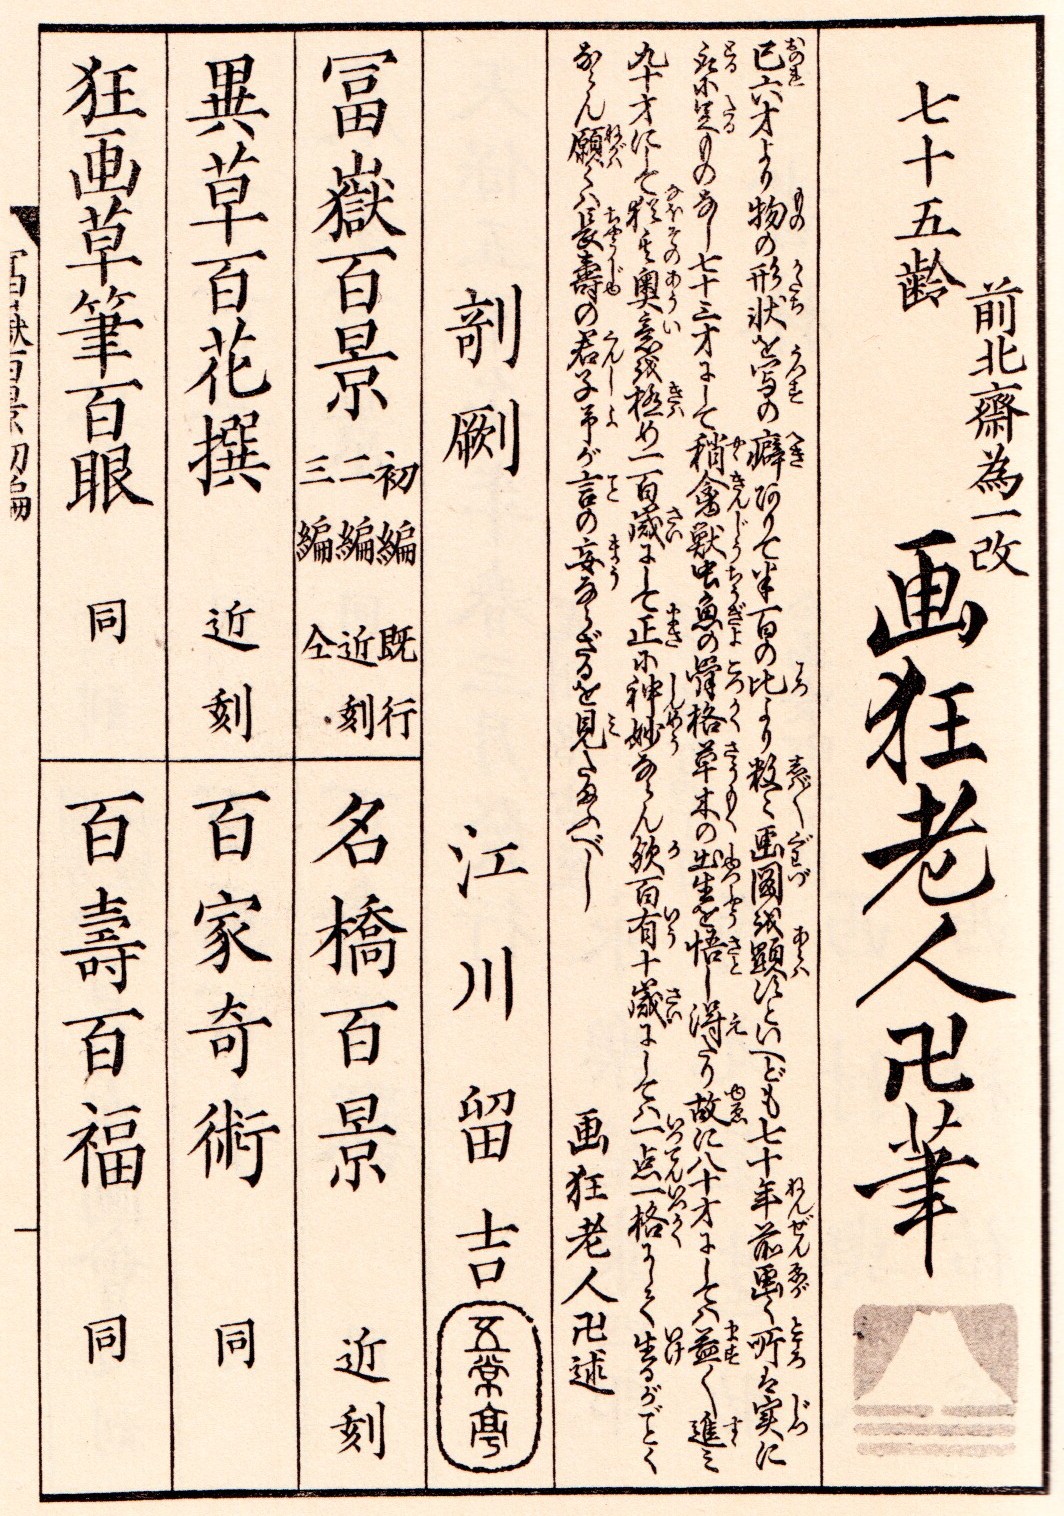 七十五齢
前北斎為一改
画狂老人卍筆
己六才より物の形状を写の癖ありて半百の比より数々画図を顕すといへども七十年前画く所は実に
取に足ものなし七十三才にして稍禽獣虫魚の骨格草木の出生を悟し得たり故に八十才にしては益々進み
九十才にして猶其奥意を極め一百歳にして正に神妙ならん歟百有十歳にしては一点一格にして生るがごとく
ならん願くは長寿の君子予が言の妄ならざるを見たまふべし
画狂老人卍述
剞劂 江川留吉
五常亭
冨嶽百景 初編既行
二編近刻
三編仝
名橋百景 近刻
異草百花撰 近刻
百家奇術 同
狂画草筆百眼 同
百壽百福 同
冨嶽百景初編
一